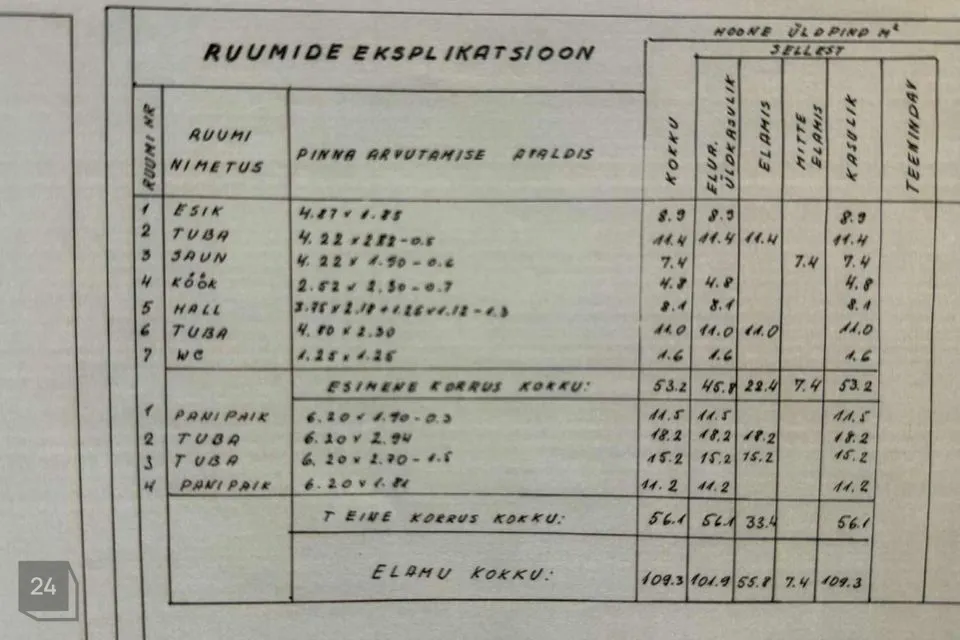 RUUMIDE EKSPLIKATSIOON
HOONE ÜLDPIND M²
SELLEST
RUUMI NR
RUUMI NIMETUS
PINNA ARVUTAMISE AVALDIS
KOKKU
ELUR. ÜLDKASULIK
ELAMIS
MITTE ELAMIS
KASULIK
TEENINDAV
1 ESIK 4.87 x 1.85 8.9 8.9 8.9
2 TUBA 4.22 x 2.82 - 0.5 11.4 11.4 11.4 11.4
3 SAUN 4.22 x 1.90 - 0.6 7.4 7.4 7.4
4 KÖÖK 2.52 x 2.30 - 0.7 4.8 4.8 4.8
5 HALL 3.75 x 2.18 + 1.26 x 1.12 - 1.3 8.1 8.1 8.1
6 TUBA 4.80 x 2.30 11.0 11.0 11.0 11.0
7 WC 1.25 x 1.25 1.6 1.6 1.6
ESIMENE KORRUS KOKKU: 53.2 45.8 22.4 7.4 53.2
1 PANIPAIK 6.20 x 1.90 - 0.3 11.5 11.5 11.5
2 TUBA 6.20 x 2.94 18.2 18.2 18.2 18.2
3 TUBA 6.20 x 2.70 - 1.5 15.2 15.2 15.2 15.2
4 PANIPAIK 6.20 x 1.81 11.2 11.2 11.2
TEINE KORRUS KOKKU: 56.1 56.1 33.4 56.1
ELAMU KOKKU: 109.3 101.9 55.8 7.4 109.3
24